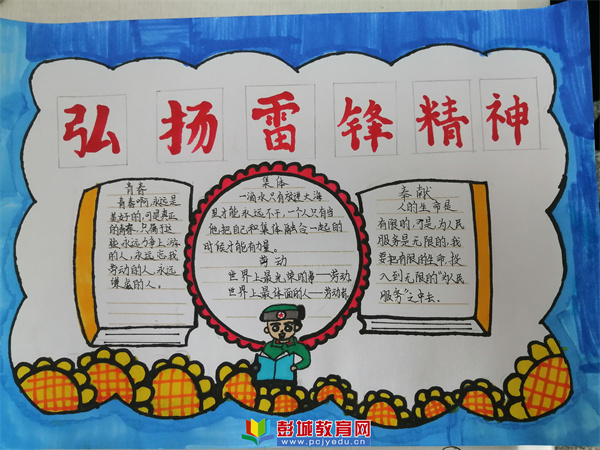 弘扬雷锋精神
青春
青春啊,永远是
美好的,可是真正
的青春,只属于这
些永远力争上游
的人,永远忘我
劳动的人,永远
谦虚的人。
集体
一滴水只有放进大海
里才能永远不干,一个人只有当
他把自己和集体融合一起的
时候才能有力量。
劳动
世界上最光荣的事——劳动
世界上最体面的人——劳动者
奉献
人的生命是
有限的,可是,为人民
服务是无限的,我
要把有限的生命,投
入到无限的“为人民
服务”之中去。
彭城教育网
www.pcjyedu.cn